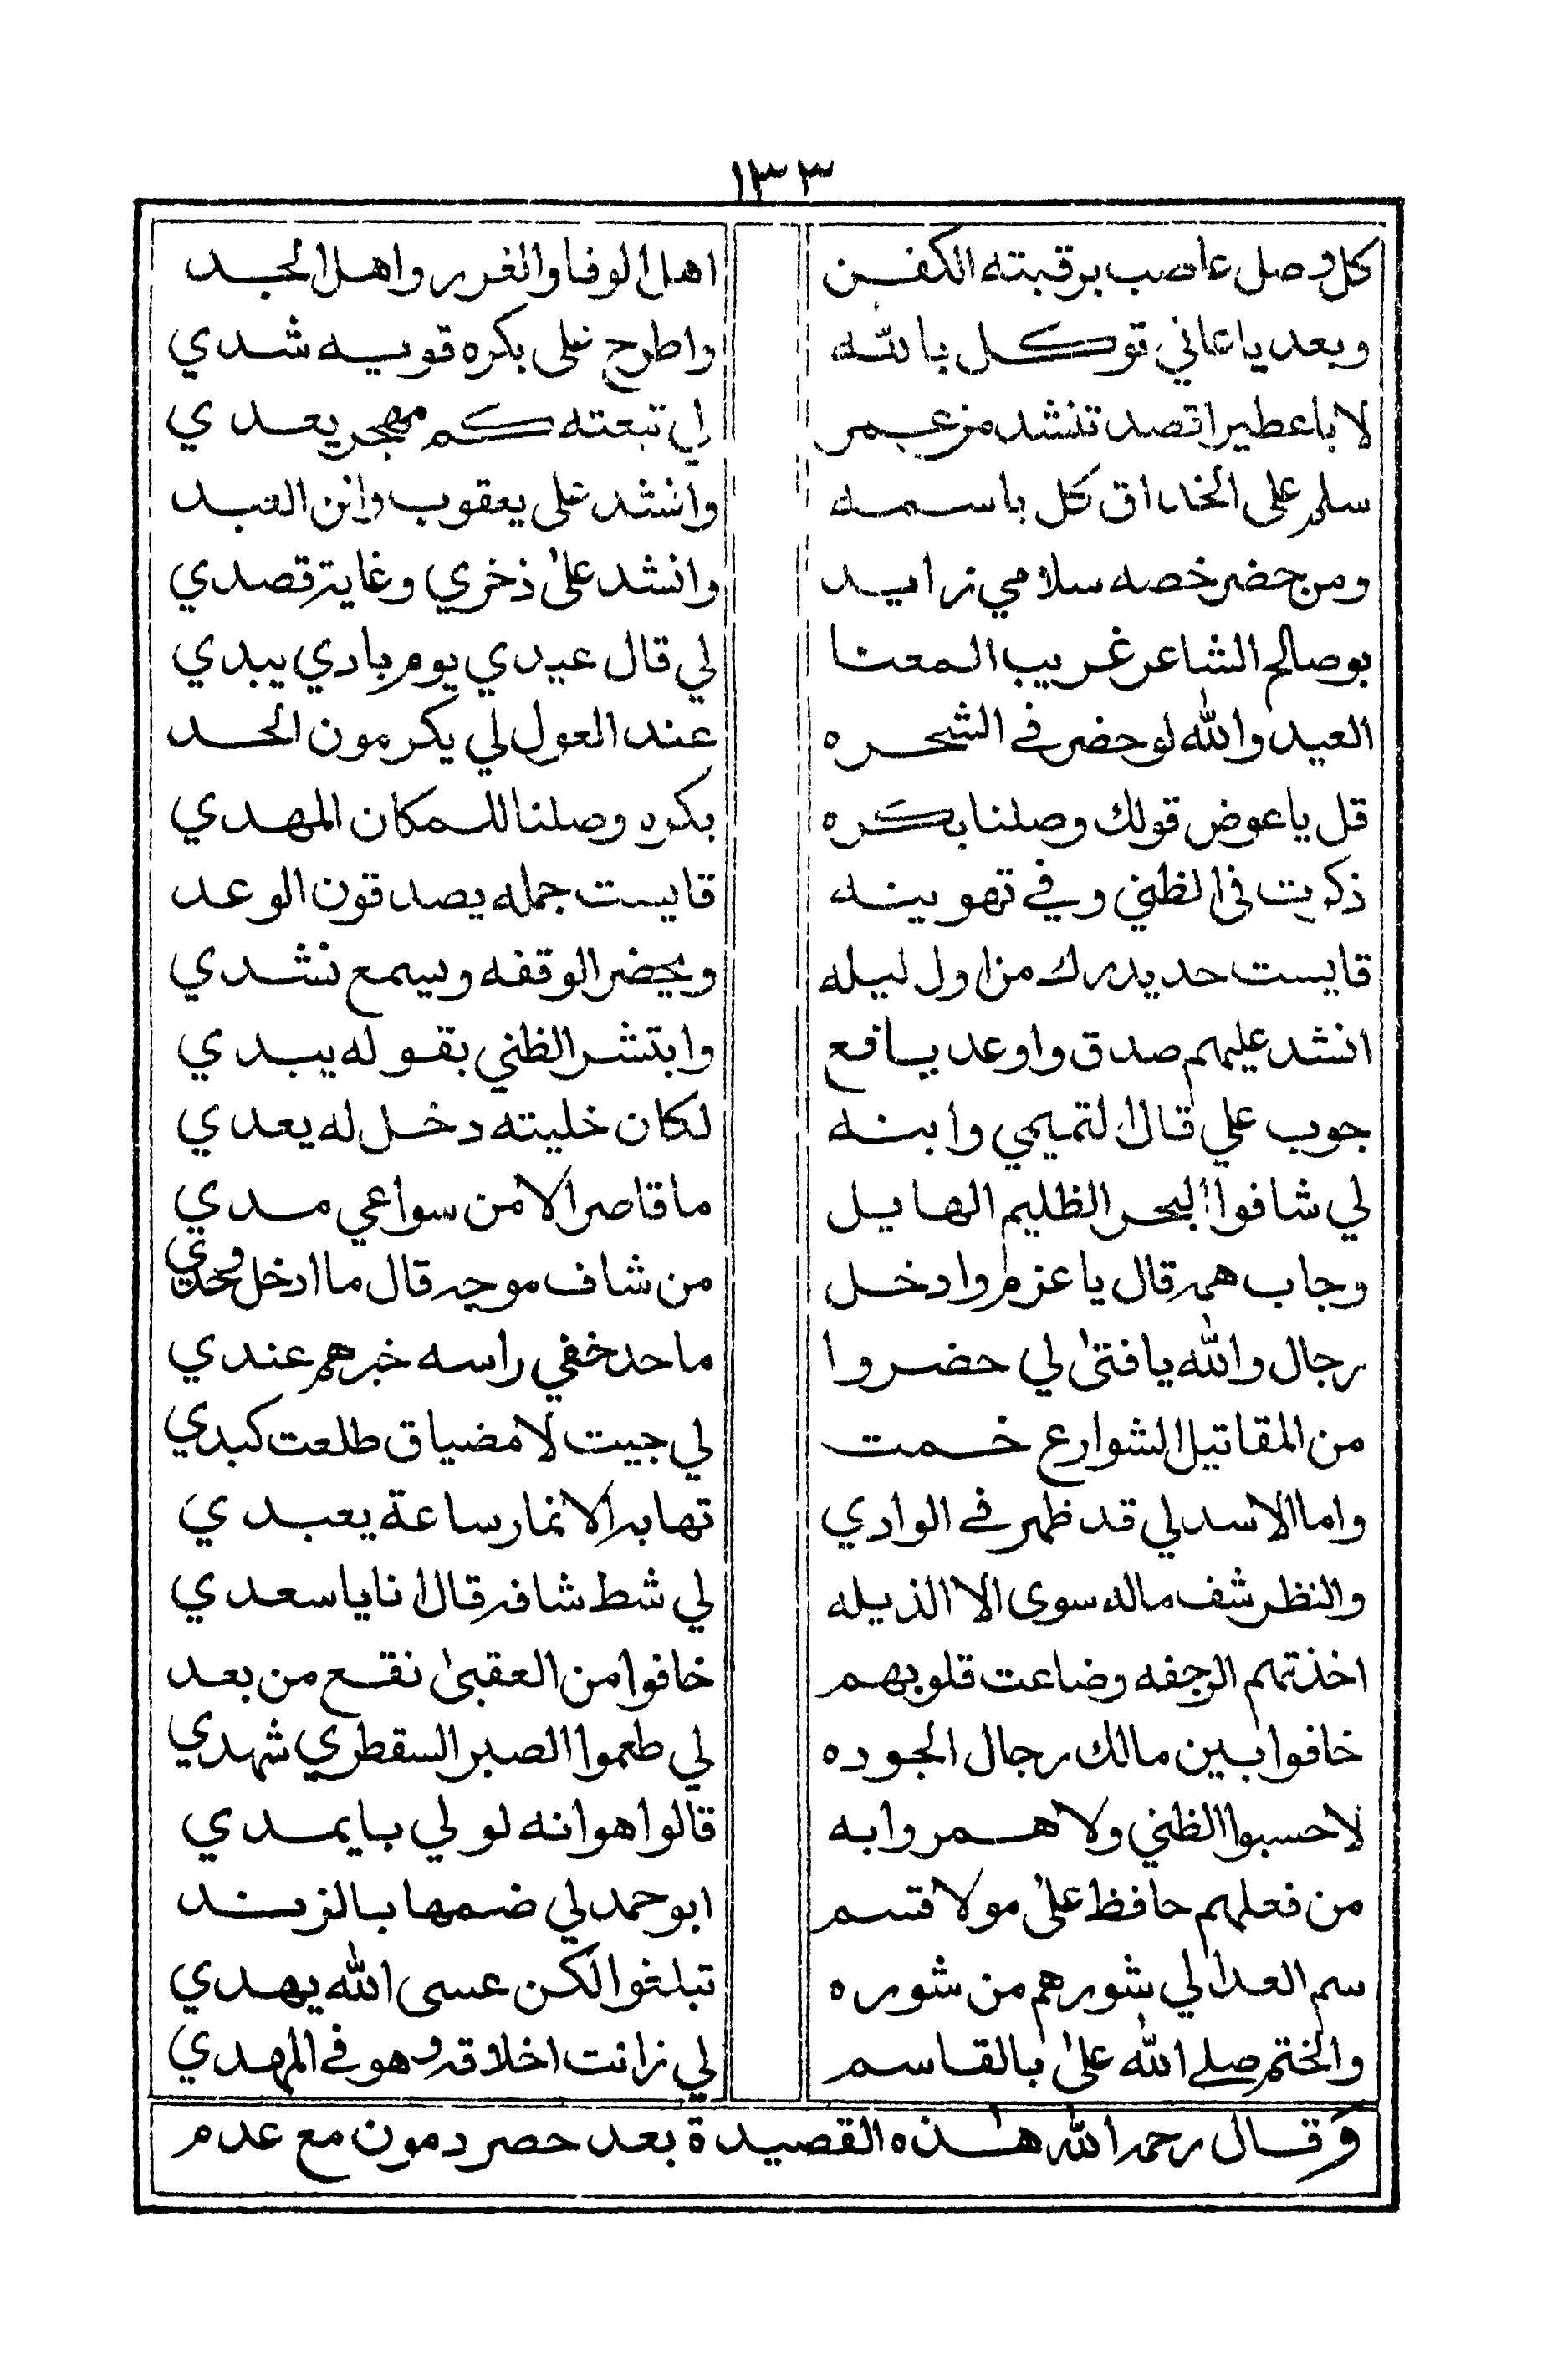 ١٣٣
كل وصل عاصب برقبته الكفن اهل الوفا والغرر واهل الجد
وبعد يا عاني توكل بالله واطرح على بكره قويه شدي
لا باعطير اقصد تنشد من عمر لي تبعته كم مهجر يعدي
سلم على الحذاق كل باسمه وانشد على يعقوب وابن العبد
ومن حضر خصه سلامي زايد وانشد على ذخري وغاية قصدي
بو صالح الشاعر غريب المعنا لي قال عيدي يوم بادي يبدي
العيد والله لو حضر في الشحره عند العول لي يكرمون الحد
قل يا عوض قولك وصلنا بكره بكره وصلنا للمكان المهدي
ذكريت في الظني وفي تهوينه قايست جمله يصدقون الوعد
قايست حد يدرك من اول ليله ويحضر الوقفه ويسمع نشدي
انشد عليهم صدق واوعد يافع وابتشر الظني بقوله يبدي
جوب علي قال التميمي وابنه لكان خليته دخل له يعدي
لي شافوا البحر الظليم الهايل ما قاصر الا من سواعي مدي
وجاب همه قال يا عزم وادخل من شاف موجه قال ما ادخل وحدي
رجال والله يا فتى لي حضروا ما حد خفي راسه خبرهم عندي
من المقاتيل الشوارع خمت لي جيت لا مضياق طلعت كبدي
واما الاسد لي قد ظهر في الوادي تهابه الانمار ساعة يعبدي
والنظر شف ماله سوى الا الذيله لي شط شافه قال انا يا سعدي
اخذتهم الرجفه وضاعت قلوبهم خافوا من العقبى نقع من بعد
خافوا بين مالك رجال الجوده لي طعموا الصبر السقطري شهدي
لا حسبوا الظني ولا همروا به قالوا هوانه لولي بايمدي
من فعلهم حافظ على مولا قسم ابو حمد لي ضمها بالزند
سم العدا لي شورهم من شوره تبلغوا لكن عسى الله يهدي
والختم صلى الله على بالقاسم لي زانت اخلاقه وهو في المهدي
وقال رحمه الله هذه القصيدة بعد حصر دمون مع عدم